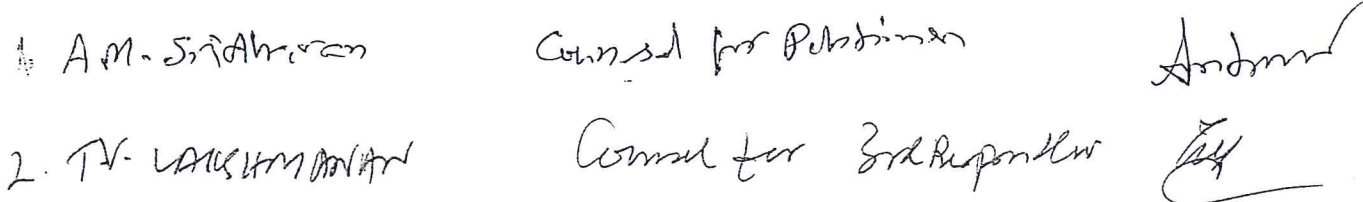 1. A.M. Sridharan Counsel for Petitioner
2. T.V. LAKSHMANAN Counsel for 3rd Respondent